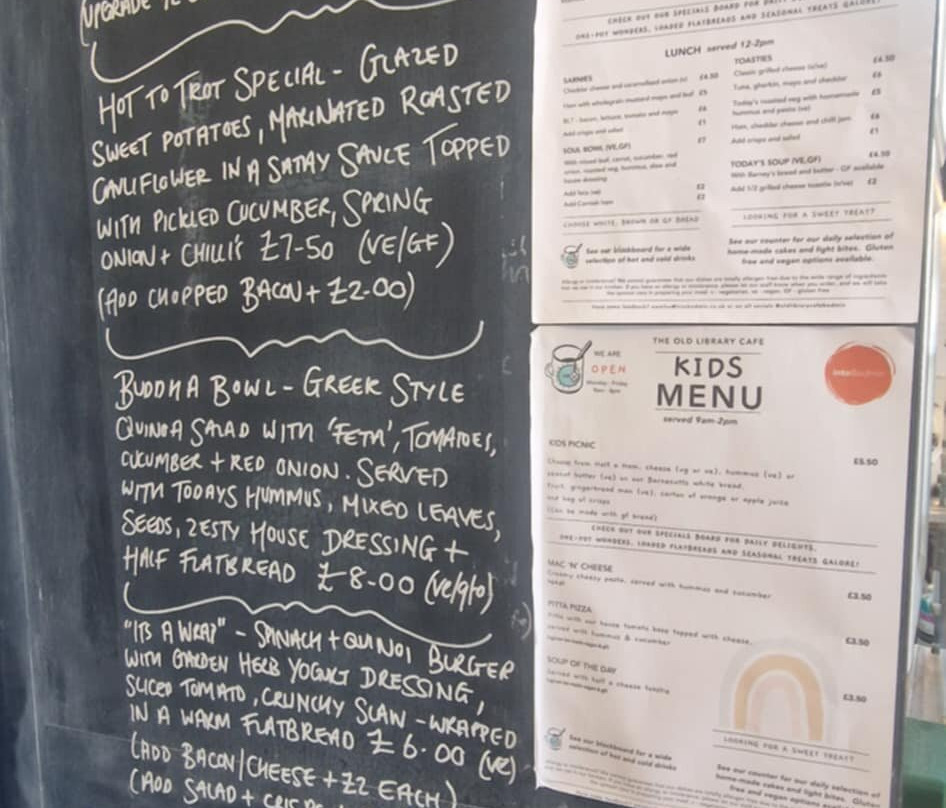 UPGRADE
HOT TO TROT SPECIAL - GLAZED
SWEET POTATOES, MARINATED ROASTED
CAULIFLOWER IN A SATAY SAUCE TOPPED
WITH PICKLED CUCUMBER, SPRING
ONION + CHILLI'S £7-50 (VE/GF)
(ADD CHOPPED BACON + £2-00)
BUDDHA BOWL - GREEK STYLE
QUINOA SALAD WITH 'FETA', TOMATOES,
CUCUMBER + RED ONION. SERVED
WITH TODAYS HUMMUS, MIXED LEAVES,
SEEDS, ZESTY HOUSE DRESSING +
HALF FLATBREAD £8-00 (ve/gfo)
"ITS A WRAP" - SPINACH + QUINOA BURGER
WITH GARDEN HERB YOGURT DRESSING,
SLICED TOMATO, CRUNCHY SLAW - WRAPPED
IN A WARM FLATBREAD £6.00 (ve)
(ADD BACON/CHEESE + £2 EACH)
(ADD SALAD +
CHECK OUT OUR SPECIALS BOARD FOR
ONE-POT WONDERS, LOADED FLATBREADS AND SEASONAL TREATS GALORE!
LUNCH served 12-2pm
SARNIES
Cheddar cheese and caramelised onion (v) £4.50
Ham with wholegrain mustard mayo and leaf £5
BLT - bacon, lettuce, tomato and mayo £6
Add crisps and salad £1
SOUL BOWL (VE,GF) £7
With mixed leaf, carrot, cucumber, red
onion, roasted veg, hummus, slaw and
house dressing
Add feta (ve) £2
Add Cornish ham £2
CHOOSE WHITE, BROWN OR GF BREAD
See our blackboard for a wide
selection of hot and cold drinks
TOASTIES
Classic grilled cheese (v/ve) £4.50
Tuna, gherkin, mayo and cheddar £6
Today's roasted veg with homemade £5
hummus and pesto (ve)
Ham, cheddar cheese and chilli jam £6
Add crisps and salad £1
TODAY'S SOUP (VE,GF) £4.50
With Barney's bread and butter - GF available
Add 1/2 grilled cheese toastie (v/ve) £2
LOOKING FOR A SWEET TREAT?
See our counter for our daily selection of
home-made cakes and light bites. Gluten
free and vegan options available.
THE OLD LIBRARY CAFE
KIDS
MENU
served 9am-2pm
WE ARE
OPEN
Monday - Friday
KIDS PICNIC £5.50
Choose from malt n ham, cheese (vg or ve), hummus (ve) or
peanut butter (ve) on our Baraccutts white bread,
fruit, gingerbread man (ve), carton of orange or apple juice
and bag of crisps
(Can be made with gf bread)
CHECK OUT OUR SPECIALS BOARD FOR DAILY DELIGHTS,
ONE-POT WONDERS, LOADED FLATBREADS AND SEASONAL TREATS GALORE!
MAC 'N' CHEESE £3.50
Creamy cheesy pasta, served with hummus and cucumber
PITTA PIZZA £3.50
Pitta with our house tomato base topped with cheese,
served with hummus & cucumber
SOUP OF THE DAY £3.50
Served with half a cheese toastie
See our blackboard for a wide
selection of hot and cold drinks
LOOKING FOR A SWEET TREAT?
See our counter for our daily selection of
home-made cakes and light bites. Gluten
free and vegan options available.